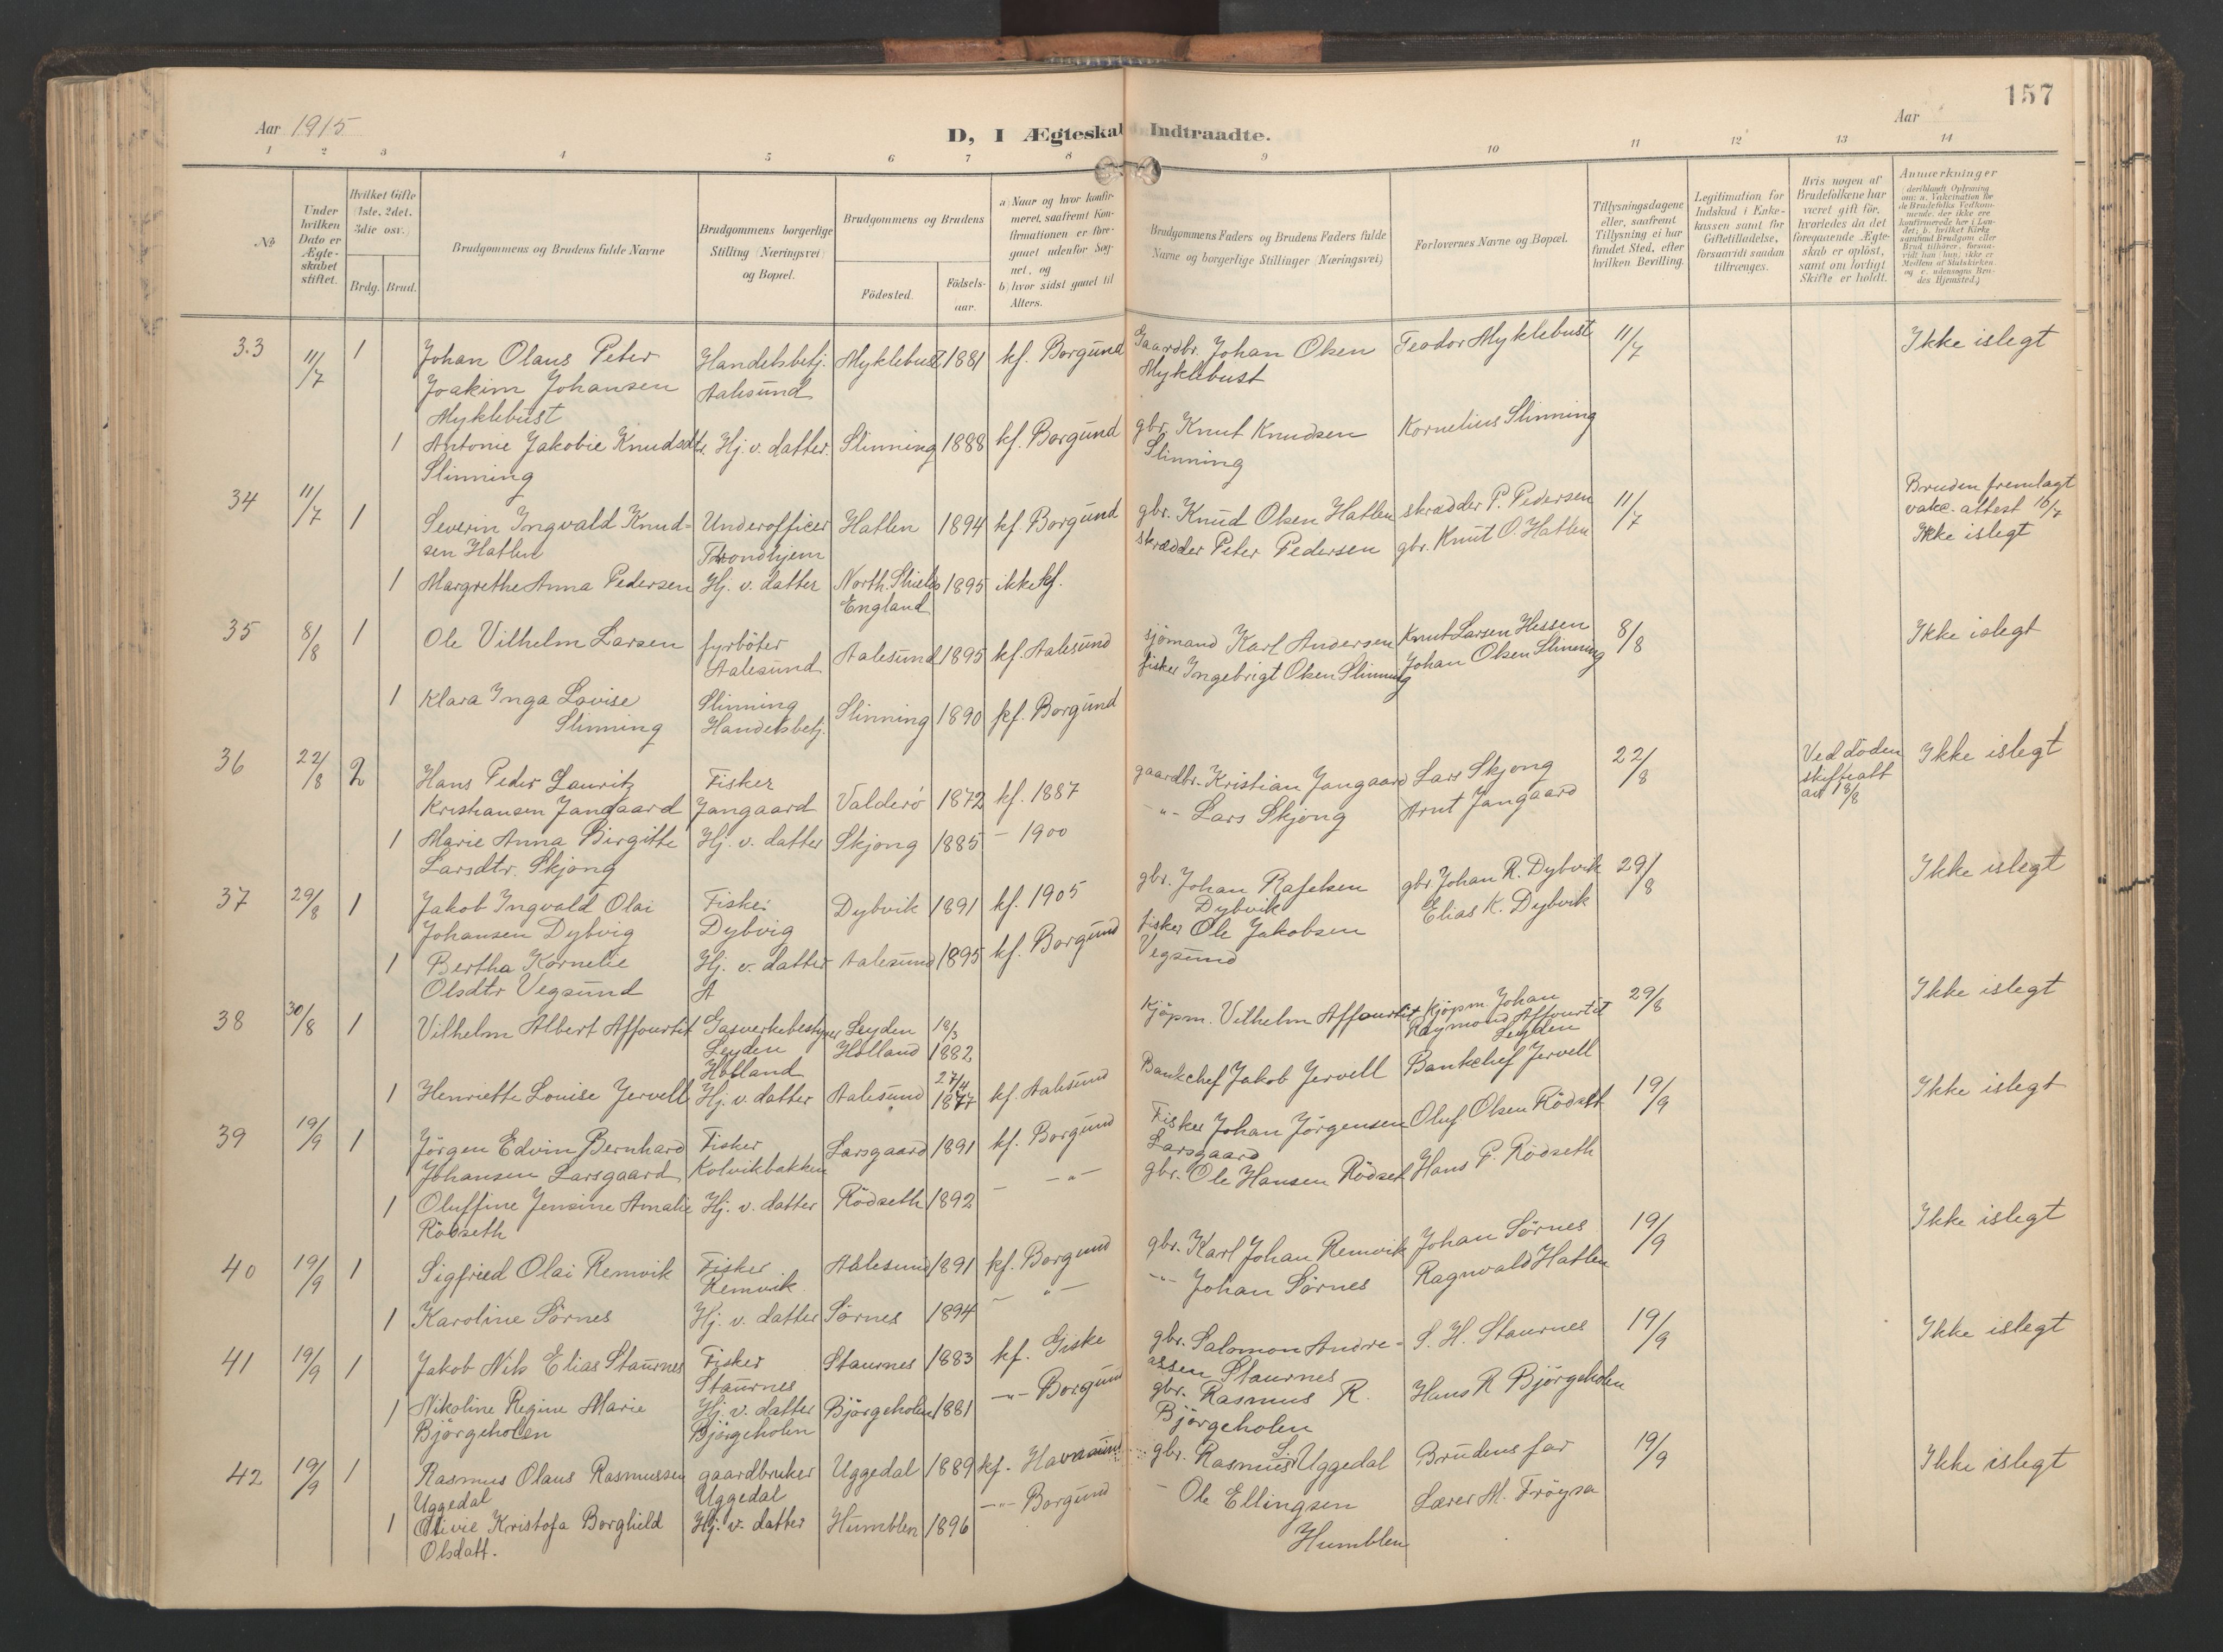 157
Aar 1915
D, I Ægteskab Indtraadte.
Aar
1 2 3 4 5 6 7 8 9 10 11 12 13 14
No
Under hvilken Dato er Ægte-skabet stiftet.
Hvilket Gifte (1ste, 2det, 3die osv.)
Brdg. Brud.
Brudgommens og Brudens fulde Navne
Brudgommens borgerlige Stilling (Næringsvei) og Bopæl.
Brudgommens og Brudens
Födested.
Födsels-aar.
a) Naar og hvor konfir-meret, saafremt Kon-firmationen er fore-gaaet udenfor Sog-net, og
b) hvor sidst gaaet til Alters.
Brudgommens Faders og Brudens Faders fulde Navne og borgerlige Stillinger (Næringsvei)
Forlovernes Navne og Bopæl.
Tillysningsdagene eller, saafremt Tillysning ei har fundet Sted, efter hvilken Bevilling.
Legitimation for Indskud i Enke-kassen samt for Giftetilladelse, forsaavidt saadan tiltrænges.
Hvis nogen af Brudefolkene har været gift för, hvorledes da det foregaaende Ægte-skab er oplöst, samt om lovligt Skifte er holdt.
Anmærkninger
(deriblandt Oplysning om: a. Vakcination for de Brudefolks Vedkom-mende, der ikke ere konfirmerede her i Lan-det; b. hvilket Kirke-samfund Brudgom eller Brud tilhörer, forsaa-vidt han (hun) ikke er Medlem af Statskirken, og c. udensogns Bru-des Hjemsted.)
33 11/7 1 Johan Olaus Peter Handelsbetj. Myklebust 1881 kf. Borgund Gaardbr. Johan Olsen Teodor Myklebust 11/7 Ikke islegt
Joakim Johansen Aalesund Myklebust
Myklebust
1 Antonie Jakobie Knudsdtr. Hj. v. datter. Slinning 1888 kf. Borgund gbr. Knut Knudsen Kornelius Slinning
Slinning Slinning
34 11/7 1 Severin Ingvald Knud- Underofficer Hatlen 1894 kf. Borgund gbr. Knud Olsen Hatlen skrædder P. Pedersen 11/7 Bruden fremlagt
sen Hatlen Trondhjem skrædder Peter Pedersen gbr. Knut O. Hatlen vakc. attest 10/7
Ikke islegt
1 Margrethe Anna Pedersen Hj. v. datter North Shields 1895 ikke kf.
England
35 8/8 1 Ole Vilhelm Larsen fyrböter Aalesund 1895 kf. Aalesund sjömand Karl Andersen Knut Larsen Hessen 8/8 Ikke islegt
Aalesund fisker Ingebrigt Olsen Slinning Johan Olsen Slinning
1 Klara Inga Lovise Slinning Slinning 1890 kf. Borgund
Slinning Handelsbetj.
36 22/8 2 Hans Peder Lauritz Fisker Valderö 1872 kf. 1887 gaardbr. Kristian Jangaard Lars Skjong 22/8 Ved döden Ikke islegt
Kristiansen Jangaard Jangaard -"- Lars Skjong Arnt Jangaard skifteatt
av 18/8
1 Marie Anna Birgitte Hj. v. datter Skjong 1885 - 1900
Larsdtr. Skjong
37 29/8 1 Jakob Ingvald Olai Fisker Dybvik 1891 kf. 1905 gbr. Johan Rafelsen gbr. Johan R. Dybvik 29/8 Ikke islegt
Johansen Dybvig Dybvig Dybvik Elias K. Dybvik
1 Bertha Kornelie Hj. v. datter Aalesund 1895 kf. Borgund fisker Ole Jakobsen
Olsdtr Vegsund A Vegsund
38 30/8 1 Vilhelm Albert Affourtit Gasverkbestyrer Leyden 18/3 Kjöpm. Vilhelm Affourtit Kjöpm. Johan 29/8 Ikke islegt
Leyden Holland 1882 Raymond Affourtit
Holland Leyden
1 Henriette Louise Jervell Hj. v. datter Aalesund 27/4 1877 kf. Aalesund Bankchef Jakob Jervell Bankchef Jervell
39 19/9 1 Jörgen Edvin Bernhard Fisker Larsgaard 1891 kf. Borgund Fisker Johan Jörgensen Oluf Olsen Rödset 19/9 Ikke islegt
Johansen Larsgaard Kolvikbakken Larsgaard
1 Oluffine Jensine Amalie Hj. v. datter Rödseth 1892 - -"- gbr. Ole Hansen Rödset Hans P. Rödseth
Rödseth
40 19/9 1 Sigfried Olai Remvik Fisker Aalesund 1891 kf. Borgund gbr. Karl Johan Remvik Johan Sörnes 19/9 Ikke islegt
Remvik
1 Karoline Sörnes Hj. v. datter Sörnes 1894 - "- -"- Johan Sörnes Ragnvald Hatlen
41 19/9 1 Jakob Nik Elias Staurnes Fisker Staurnes 1883 kf. Giske gbr. Salomon Andre- S. H. Staurnes 19/9 Ikke islegt
Staurnes assen Staurnes
1 Nikoline Regine Marie Hj. v. datter Björgeholen 1881 -"- Borgund gbr. Rasmus R. Hans R Björgeholen
Björgeholen Björgeholen Björgeholen
42 19/9 1 Rasmus Olaus Rasmussen gaardbruker Uggedal 1889 kf. gbr. Rasmus S. Uggedal Brudens far 19/9 Ikke islegt
Uggedal Uggedal
1 Olivie Kristofa Borghild Hj. v. datter Humblen 1896 -"- Borgund - Ole Ellingsen Lærer M. Fröysa
Olsdatt. Humblen